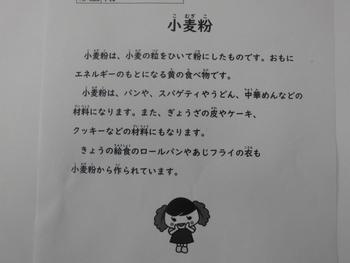 小麦粉
小麦粉は、小麦の粒をひいて粉にしたものです。おもに
エネルギーのもとになる黄の食べ物です。
小麦粉は、パンや、スパゲティやうどん、中華めんなどの
材料になります。また、ぎょうざの皮やケーキ、
クッキーなどの材料にもなります。
きょうの給食のロールパンやあじフライの衣も
小麦粉から作られています。